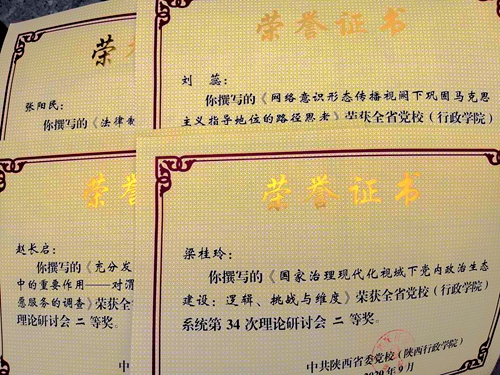 荣
张阳民：
你撰写的《法律制
荣誉证书
刘 蕊：
你撰写的《网络意识形态传播视阈下巩固马克思
主义指导地位的路径思考》荣获全省党校（行政学院）
荣
赵长启：
你撰写的《充分发
中的重要作用——对渭
愿服务的调查》荣获全
理论研讨会 二 等
中
荣誉证书
梁桂玲：
你撰写的《国家治理现代化视域下党内政治生态
建设：逻辑、挑战与维度》荣获全省党校（行政学院）
系统第 34 次理论研讨会 二 等奖。
中共陕西省委党校（陕西行政学院）
年 9 月